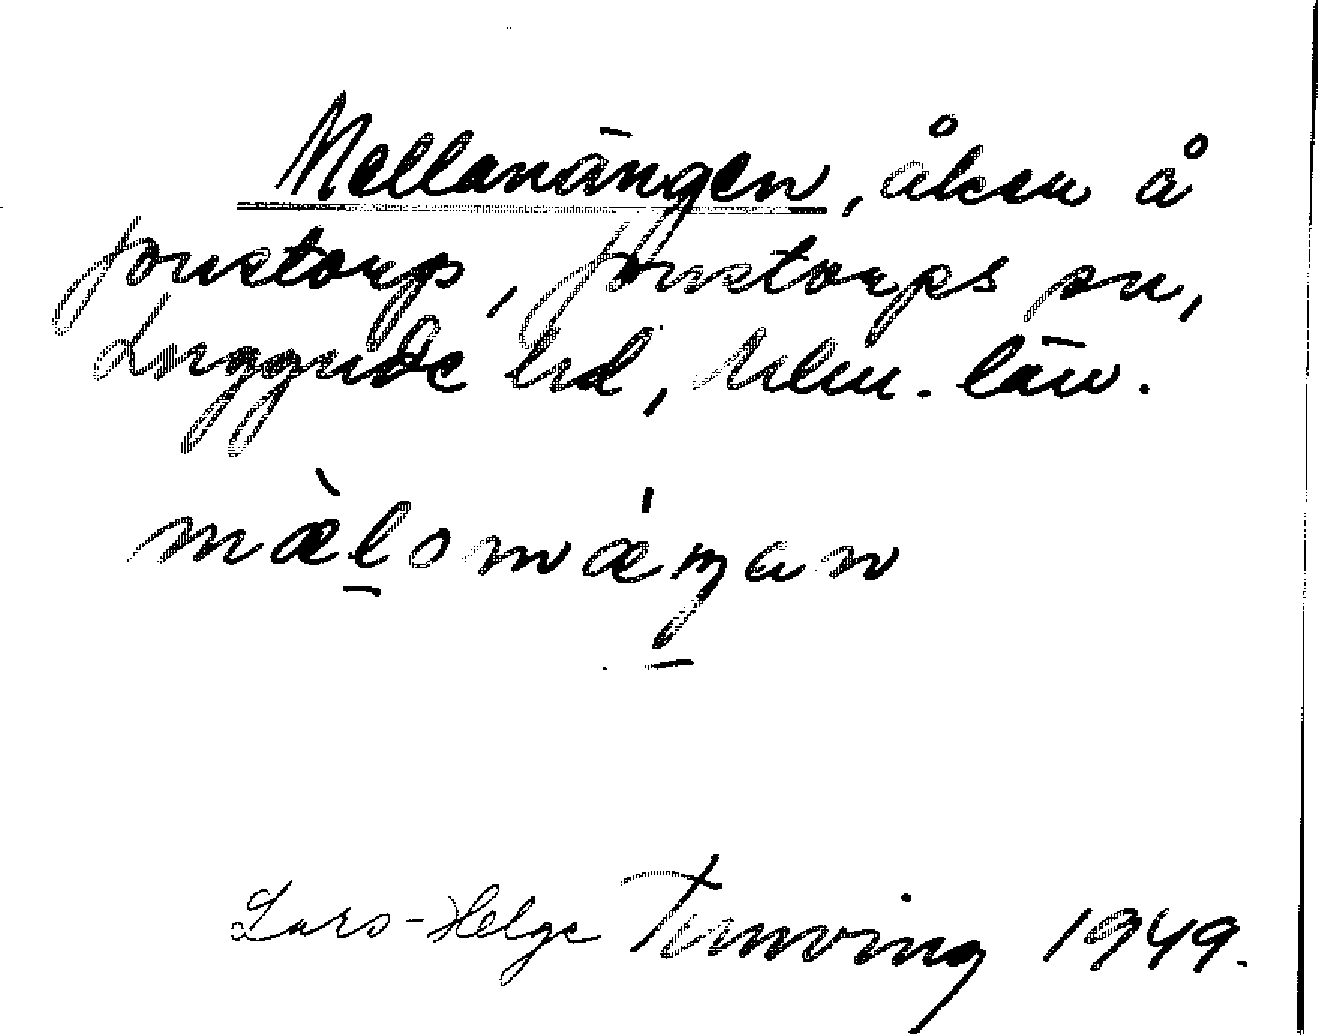 Mellanängen, åker å
Jonstorp, Jonstorps sn,
Luggude hd, Mlm. län.
mæ̀l̠onǽŋ̠an
Lars-Helge Ternving 1949.